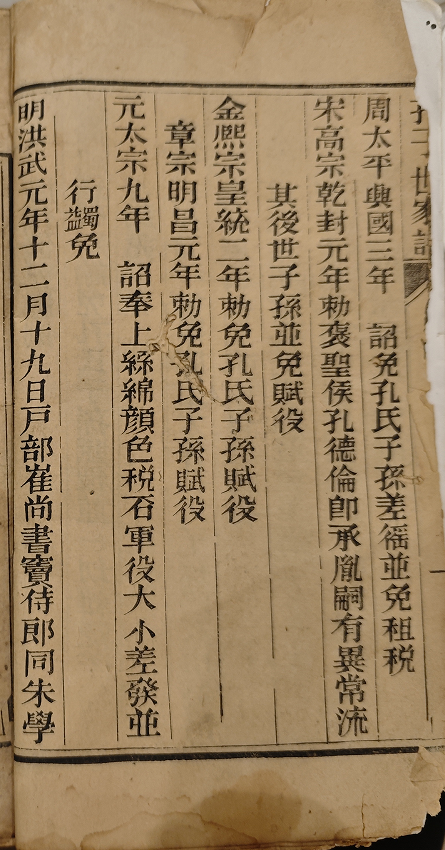 孔子世家譜
周太平興國三年 詔免孔氏子孫差徭並免租税
宋高宗乾封元年勅褒聖侯孔德倫卽承胤嗣有異常流
其後世子孫並免賦役
金熙宗皇統二年勅免孔氏子孫賦役
章宗明昌元年勅免孔氏子孫賦役
元太宗九年 詔奉上絲綿顔色税石軍役大小差發並
行蠲免
明洪武元年十二月十九日戸部崔尚書竇侍郎同朱學